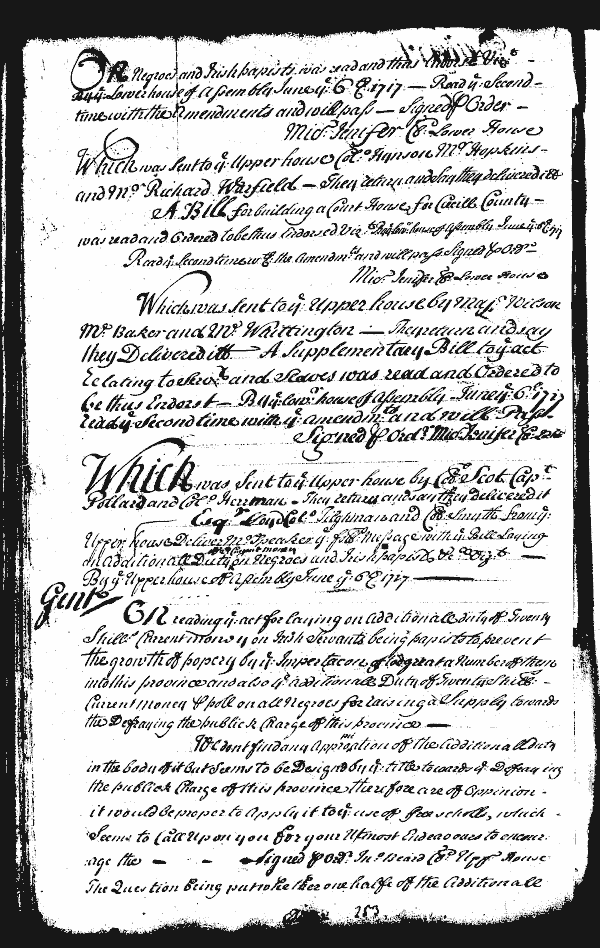 On Negroes and Irish papists was read and thus Endorst Vizt
By ye Lower house of Assembly June ye 6th 1717 — Read ye Second
time with the amendments and will pass — Signed p Order —
Mic: Jenifer Cl Lower House
Which was Sent to ye Upper house Col: Hynson Mr Hopkins
and Mr Richard Warfield — They return and say they delivered itt
A Bill for building a Court House for Cecill County —
was read and Ordered to be thus Endorsed Viz By ye low house of assembly June ye 6th 1717
Read ye Second time wth the amendmts and will pass Signed p Ordr
Mic: Jenifer Cl Lower House
Which was Sent to ye Upper house by Majr Wilson
Mr Baker and Mr Whittington — They return and say
they Delivered itt — A Supplementary Bill to ye act
Relating to Servts and Slaves was read and Ordered to
be thus Endorst — By ye Lowr house of assembly — June ye 6th 1717
read ye Second time with ye amendmts and will Pass.
Signed p Ordr Mic: Jenifer Cl
Which was Sent to ye Upper house by Col Scot Capt
Pollard and Col: Herrman — They return and say they delivered it
Esqr Loyd Col: Tilghman and Col Smyth from ye
Upper house Deliver Mr Speaker ye foll: Message with ye Bill Laying
an additionall Duty on Negroes and Irish papists
By ye Upper house of Assembly June ye 6th 1717 —
Gent
On reading ye act for laying an additionall duty of Twenty
Shills Current money on Irish Servants being papists to prevent
the growth of popery by ye Importacon of too great a Number of them
into this province and also ye additionall Duty of Twenty Shills
Current money p poll on all Negroes for raising a Supply towards
the Defraying the publick Charge of this province —
We dont find any Appropriation of the additionall duty
in the body of it but Seems to be Designd by ye title towards ye Defraying
the publick Charge of this province therefore are of Opinion
it would be proper to Apply it to ye use of free scholls, which
Seems to Call Upon you for your Utmost Endeavours to encour
age the — — Signed p Ordr Jno Beard Cl Uppr House
The Question being put whether one halfe of the Additionall
253